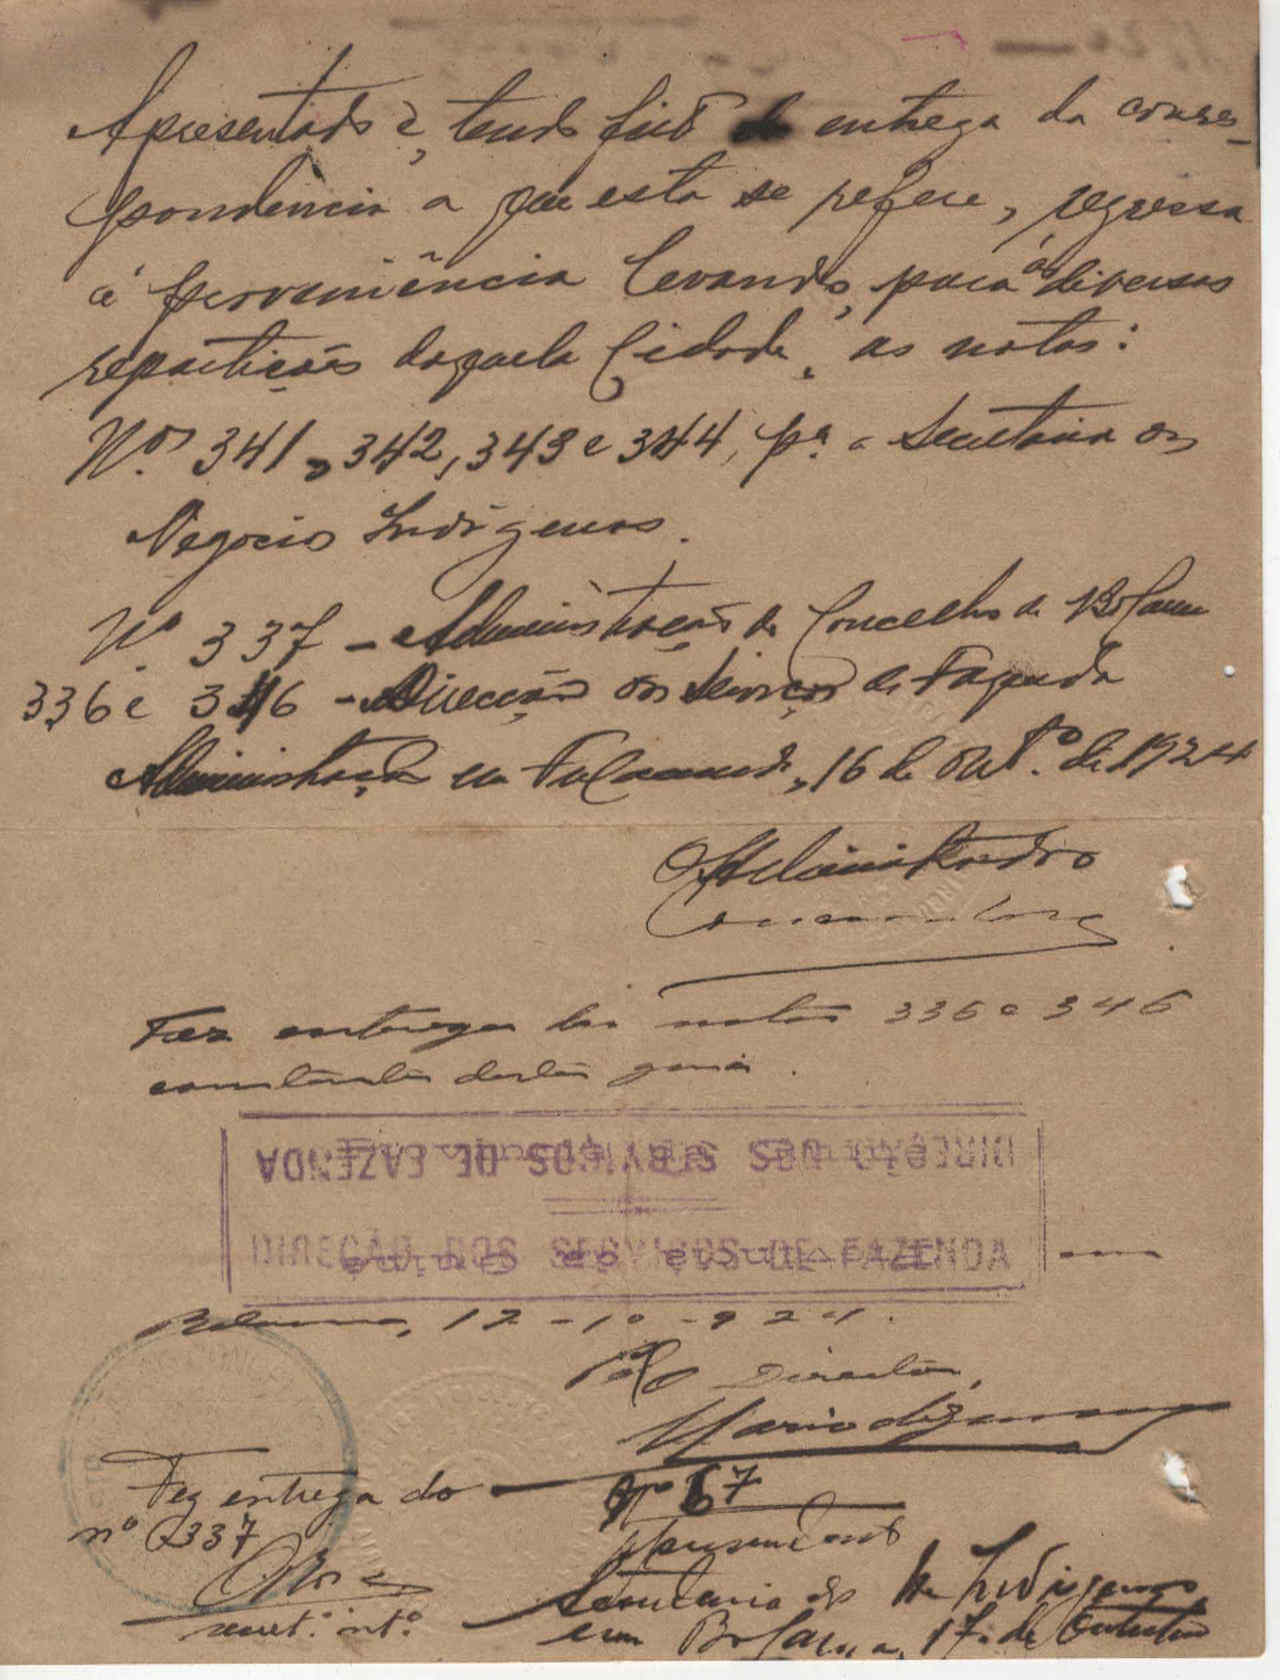 Apresentado e, tendo feito entrega da corres-
pondência a que esta se refere, regressa
á proveniência levando, para as diversas
repartições daquela Cidade, as notas:
N.os 341, 342, 343 e 344, pª a Secretaria dos
Negocios Indígenas.
Nº 337 - Administração do Concelho de Bolama
336 e 346 - Direcção dos Serviços de Fazenda
Administração em 16 de Outº. de 1924
O Administrador
Fez entrega das notas 336 e 346
constantes desta guia.
DIREÇÃO DOS SERVIÇOS DE FAZENDA
DIREÇÃO DOS SERVIÇOS DE FAZENDA
Bolama, 17-10-924.
Pelo Director,
Mario
Fez entrega do
nº 337
secret.º int.º
Nº 67
Apresentado
Secretaria dos Indigenas
em Bolama, 17 de Outubro